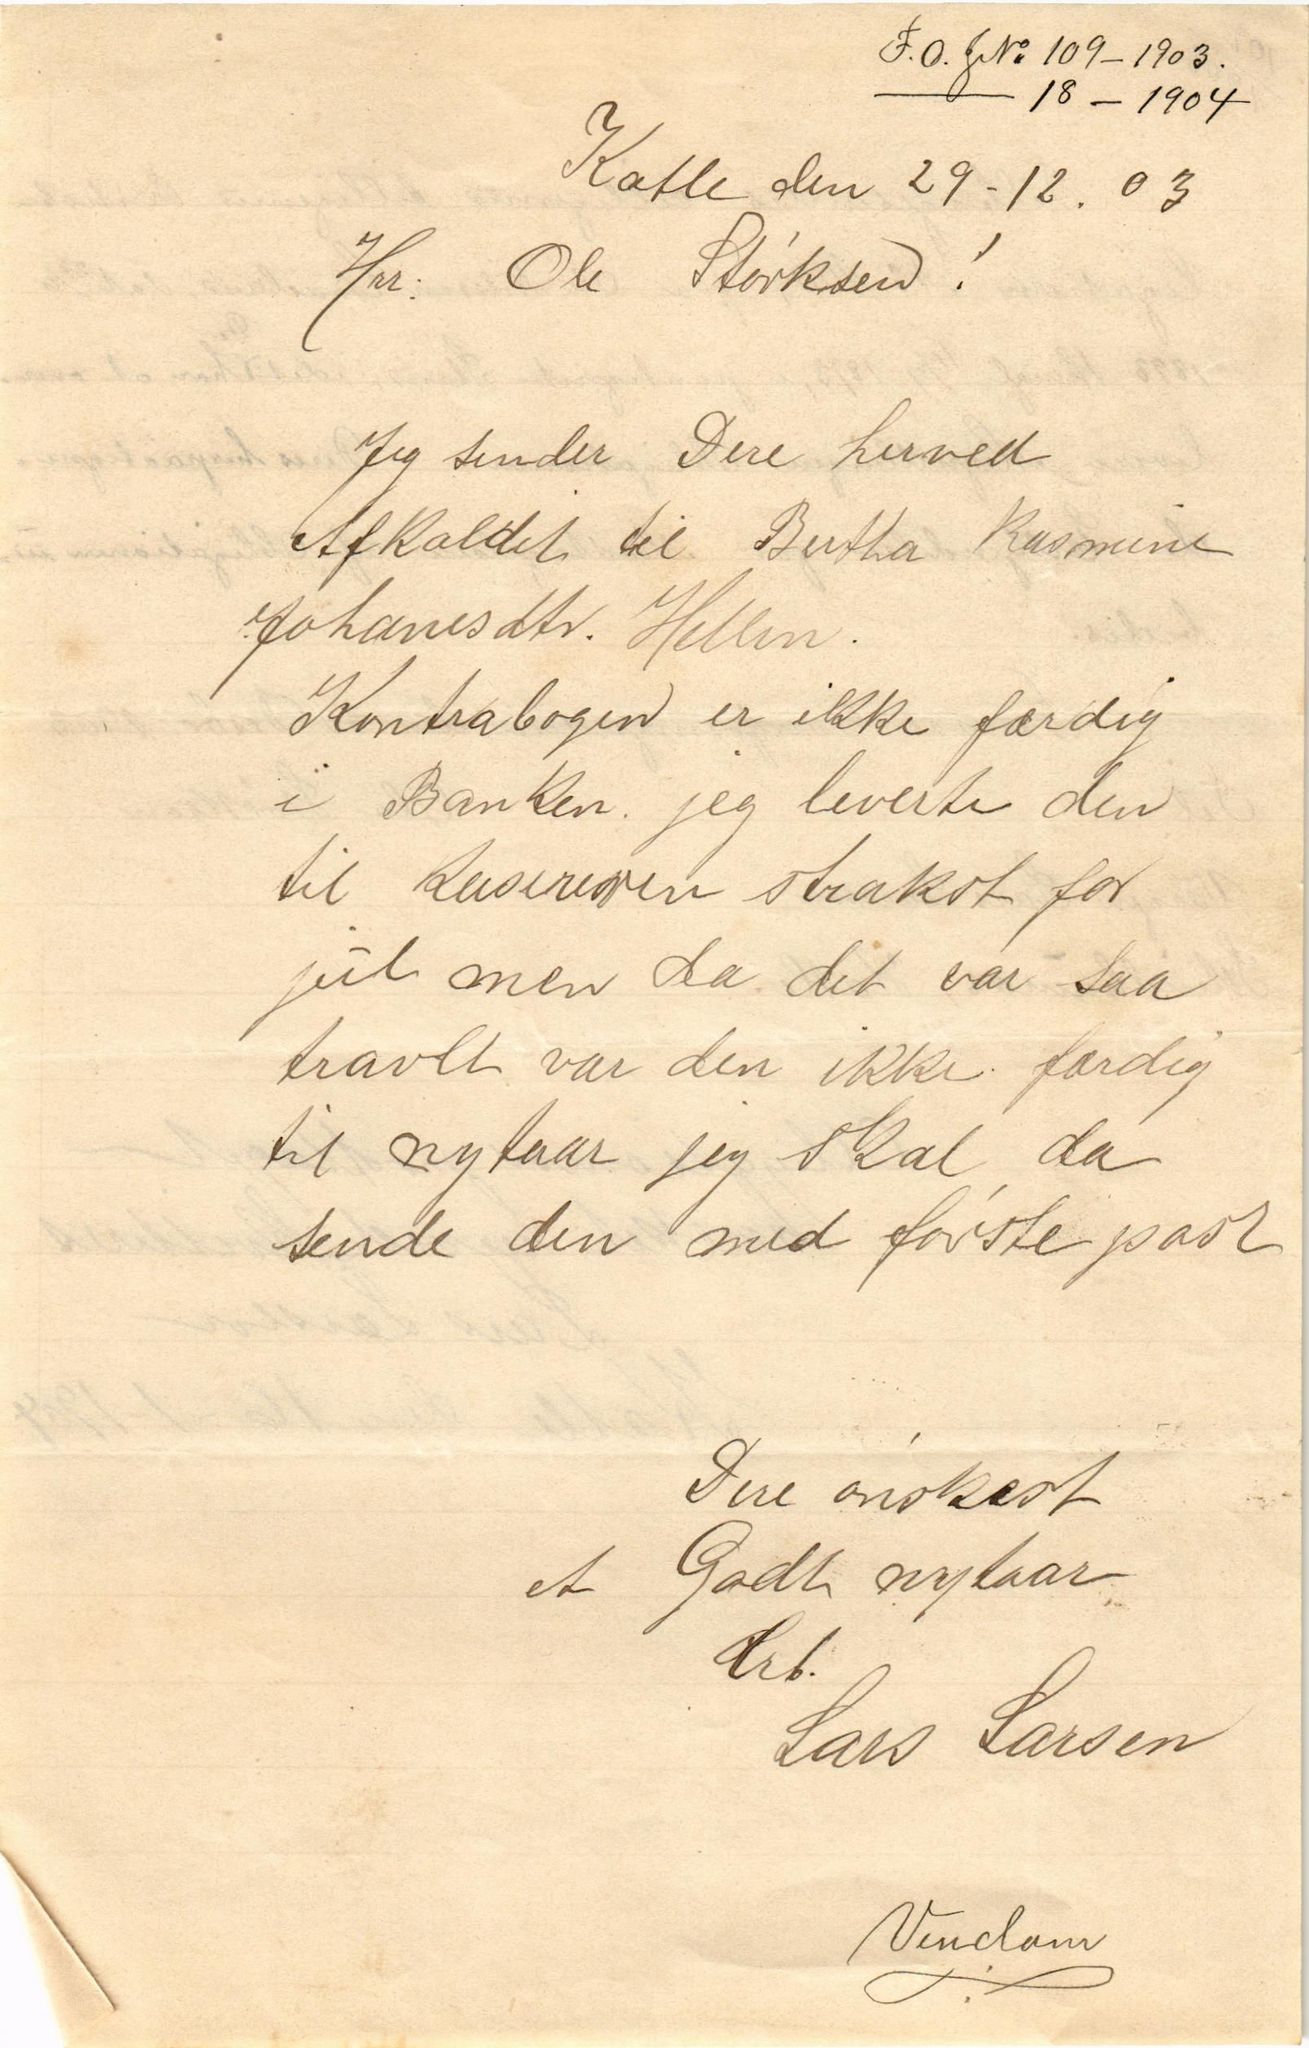 F.O. JNo 109 – 1903.
18 – 1904
Katle den 29-12.03
Hr: Ole Störksen!
Jeg sender Dere herved
Afkaldet til Bertha Rasmine
Johanesdtr. Hellen.
Kontrabogen er ikke færdig
i Banken. jeg leverte den
til kasereren strakst for
jul men da det var saa
travlt var den ikke færdig
til nytaar jeg skal da
sende den med förste post
Dere önskest
et Godt nytaar
Erb.
Lars Larsen